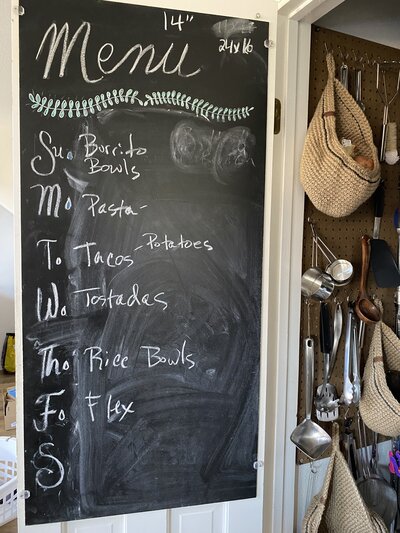 14"
24x16
Menu
Su. Burrito
Bowls
M. Pasta-
T. Tacos - Potatoes
W. Tostadas
Th. Rice Bowls
F. Flex
S